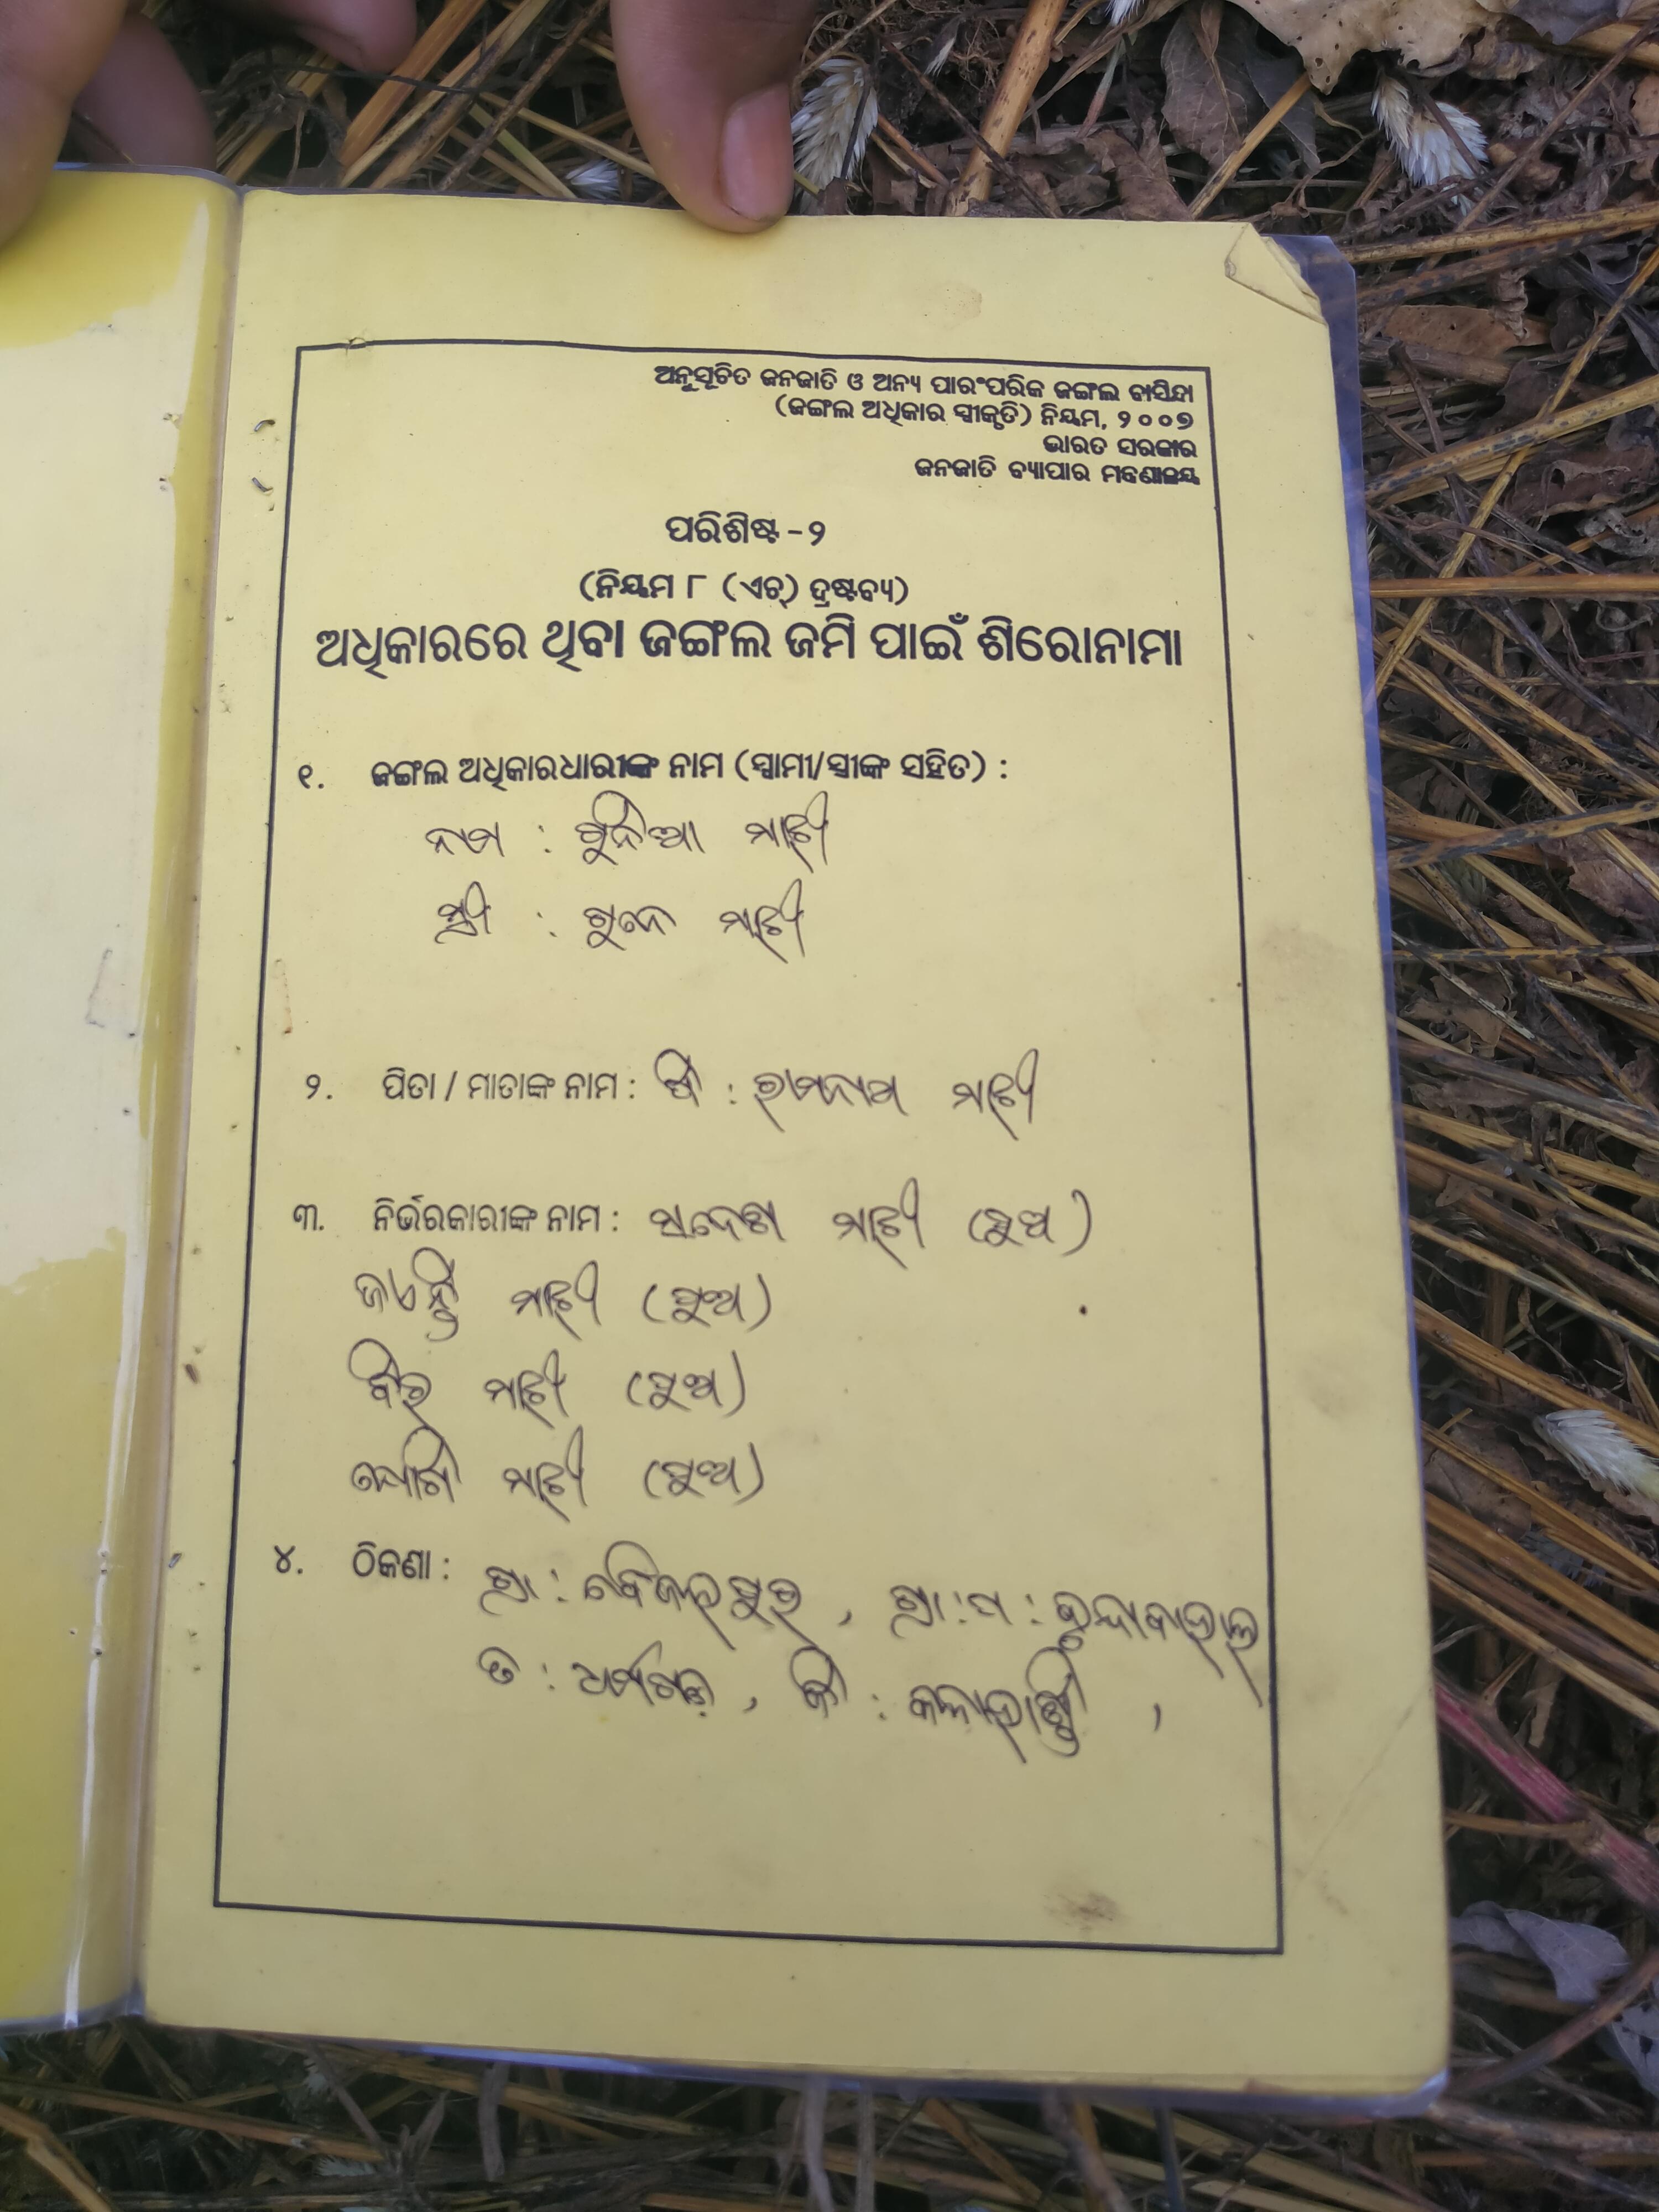 ଅନୁସୂଚିତ ଜନଜାତି ଓ ଅନ୍ୟ ପାରଂପରିକ ଜଙ୍ଗଲ ବାସିନ୍ଦା
(ଜଙ୍ଗଲ ଅଧିକାର ସ୍ୱୀକୃତି) ନିୟମ, ୨୦୦୭
ଭାରତ ସରକାର
ଜନଜାତି ବ୍ୟାପାର ମନ୍ତ୍ରଣାଳୟ
ପରିଶିଷ୍ଟ - ୨
(ନିୟମ ୮ (ଏଚ୍) ଦ୍ରଷ୍ଟବ୍ୟ)
ଅଧିକାରରେ ଥିବା ଜଙ୍ଗଲ ଜମି ପାଇଁ ଶିରୋନାମା
୧. ଜଙ୍ଗଲ ଅଧିକାରଧାରୀଙ୍କ ନାମ (ସ୍ୱାମୀ/ସ୍ତ୍ରୀଙ୍କ ସହିତ) :
ନାମ : ମାଝୀ
ସ୍ତ୍ରୀ : ମାଝୀ
୨. ପିତା / ମାତାଙ୍କ ନାମ : ପି : ରାମନାମ ମାଝୀ
୩. ନିର୍ଭରକାରୀଙ୍କ ନାମ : ମାଝୀ (ପୁଅ)
ମାଝୀ (ପୁଅ)
ମାଝୀ (ପୁଅ)
ମାଝୀ (ପୁଅ)
୪. ଠିକଣା : ଗ୍ରା : ବିଜଲପୁର , ଗ୍ରା : ପ :
ତ : ଧର୍ମଗଡ଼ , ଜି : କଳାହାଣ୍ଡି ,